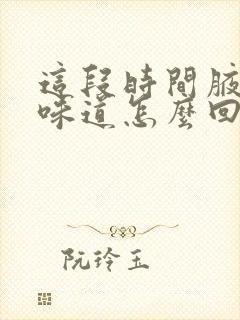 這段時間腋
味道怎麼回
阮玲玉